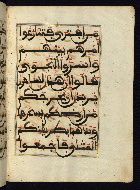 من افترى فتنزعوا
امرهم بينهم
واسروا النجوى
قالوا ان هذن لسحر
ن يريدن ان يخرجكم
من ارضكم بسحرهما
ويذهبا بطريقتكم
المثلى فاجمعوا